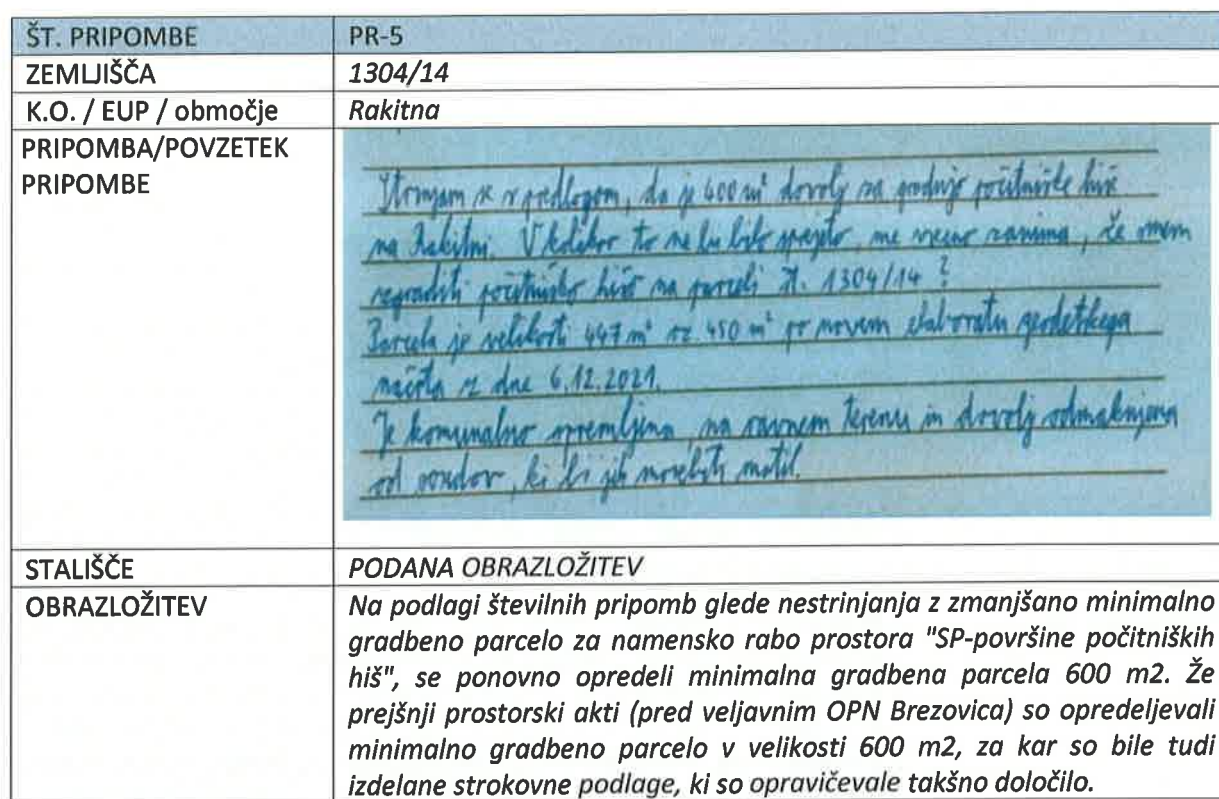 ŠT. PRIPOMBE PR-5
ZEMLJIŠČA 1304/14
K.O. / EUP / območje Rakitna
PRIPOMBA/POVZETEK
PRIPOMBE
Strinjam se s predlogom, da je 400 m² dovolj za gradnjo počitniške hiše
na Rakitni. V kolikor to ne bi bilo sprejeto, me vseeno zanima, če smem
zgraditi počitniško hišo na parceli št. 1304/14 ?
Parcela je velikosti 447 m² oz. 450 m² po novem elaboratu geodetskega
načrta z dne 6.12.2021.
Je komunalno opremljena, na ravnem terenu in dovolj odmaknjena
od sosedov, ki bi jih morebiti motil.
STALIŠČE PODANA OBRAZLOŽITEV
OBRAZLOŽITEV Na podlagi številnih pripomb glede nestrinjanja z zmanjšano minimalno
gradbeno parcelo za namensko rabo prostora "SP-površine počitniških
hiš", se ponovno opredeli minimalna gradbena parcela 600 m2. Že
prejšnji prostorski akti (pred veljavnim OPN Brezovica) so opredeljevali
minimalno gradbeno parcelo v velikosti 600 m2, za kar so bile tudi
izdelane strokovne podlage, ki so opravičevale takšno določilo.